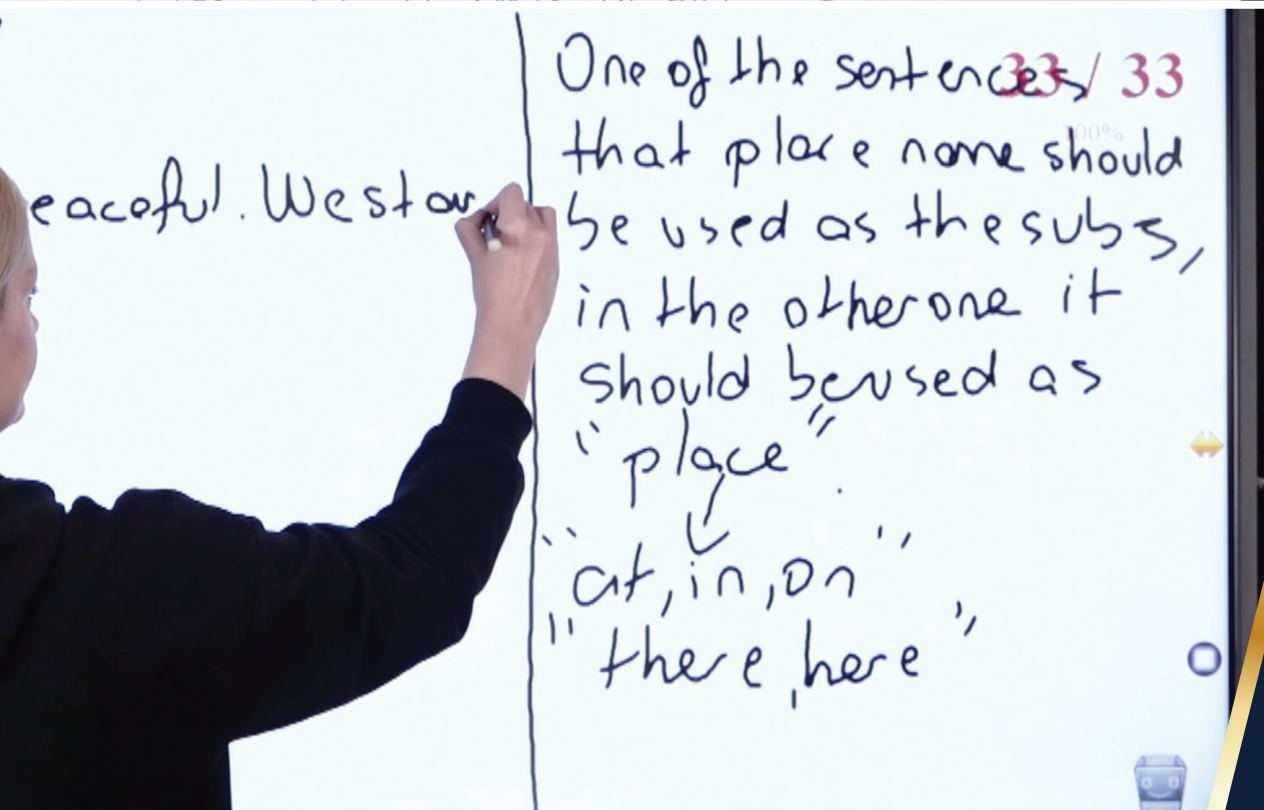 eaceful. We sta
One of the sentences
33 / 33
100%
that place name should
be used as the subs,
in the other one it
should be used as
"place"
"at, in, on"
"there, here"